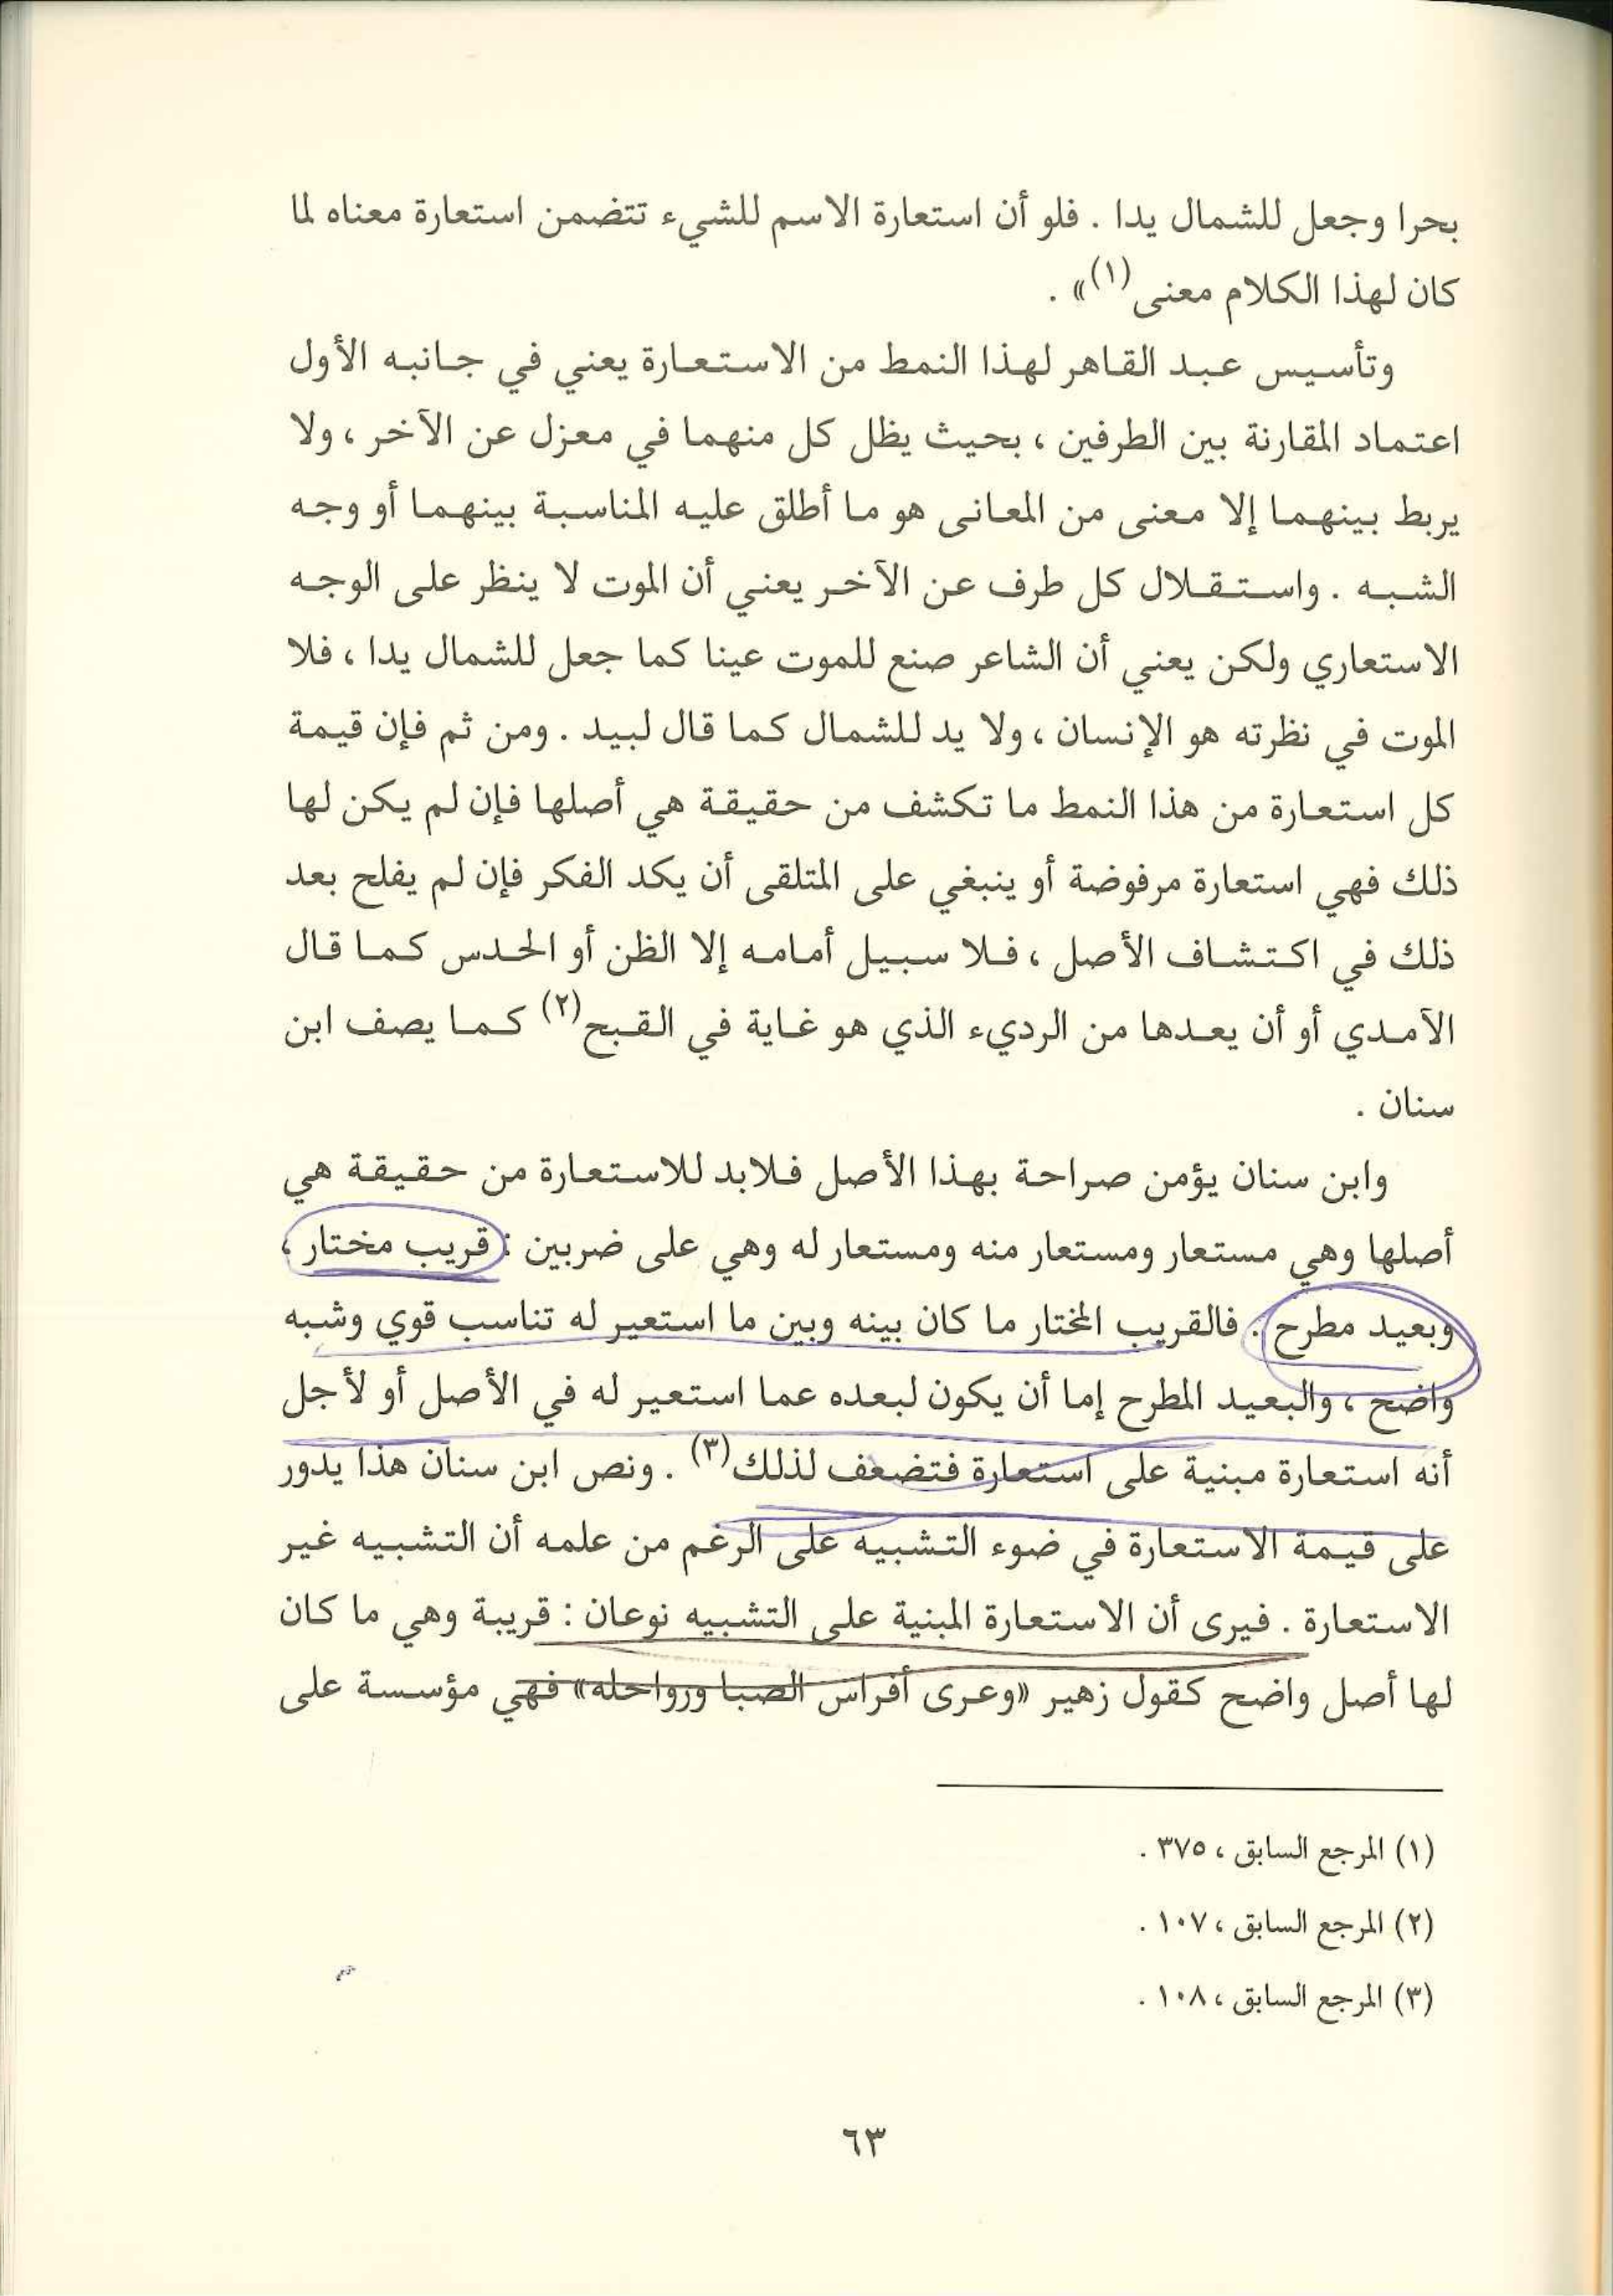 بحرا وجعل للشمال يدا . فلو أن استعارة الاسم للشيء تتضمن استعارة معناه لما
كان لهذا الكلام معنى(١)» .
وتأسيس عبد القاهر لهذا النمط من الاستعارة يعني في جانبه الأول
اعتماد المقارنة بين الطرفين ، بحيث يظل كل منهما في معزل عن الآخر ، ولا
يربط بينهما إلا معنى من المعانى هو ما أطلق عليه المناسبة بينهما أو وجه
الشبه . واستقلال كل طرف عن الآخر يعني أن الموت لا ينظر على الوجه
الاستعاري ولكن يعني أن الشاعر صنع للموت عينا كما جعل للشمال يدا ، فلا
الموت في نظرته هو الإنسان ، ولا يد للشمال كما قال لبيد . ومن ثم فإن قيمة
كل استعارة من هذا النمط ما تكشف من حقيقة هي أصلها فإن لم يكن لها
ذلك فهي استعارة مرفوضة أو ينبغي على المتلقى أن يكد الفكر فإن لم يفلح بعد
ذلك في اكتشاف الأصل ، فلا سبيل أمامه إلا الظن أو الحدس كما قال
الآمدي أو أن يعدها من الرديء الذي هو غاية في القبح(٢) كما يصف ابن
سنان .
وابن سنان يؤمن صراحة بهذا الأصل فلابد للاستعارة من حقيقة هي
أصلها وهي مستعار ومستعار منه ومستعار له وهي على ضربين : قريب مختار ،
وبعيد مطرح . فالقريب المختار ما كان بينه وبين ما استعير له تناسب قوي وشبه
واضح ، والبعيد المطرح إما أن يكون لبعده عما استعير له في الأصل أو لأجل
أنه استعارة مبنية على استعارة فتضعف لذلك(٣) . ونص ابن سنان هذا يدور
على قيمة الاستعارة في ضوء التشبيه على الرغم من علمه أن التشبيه غير
الاستعارة . فيرى أن الاستعارة المبنية على التشبيه نوعان : قريبة وهي ما كان
لها أصل واضح كقول زهير «وعرى أفراس الصبا ورواحله» فهي مؤسسة على
(١) المرجع السابق ، ٣٧٥ .
(٢) المرجع السابق ، ١٠٧ .
(٣) المرجع السابق ، ١٠٨ .
٦٣